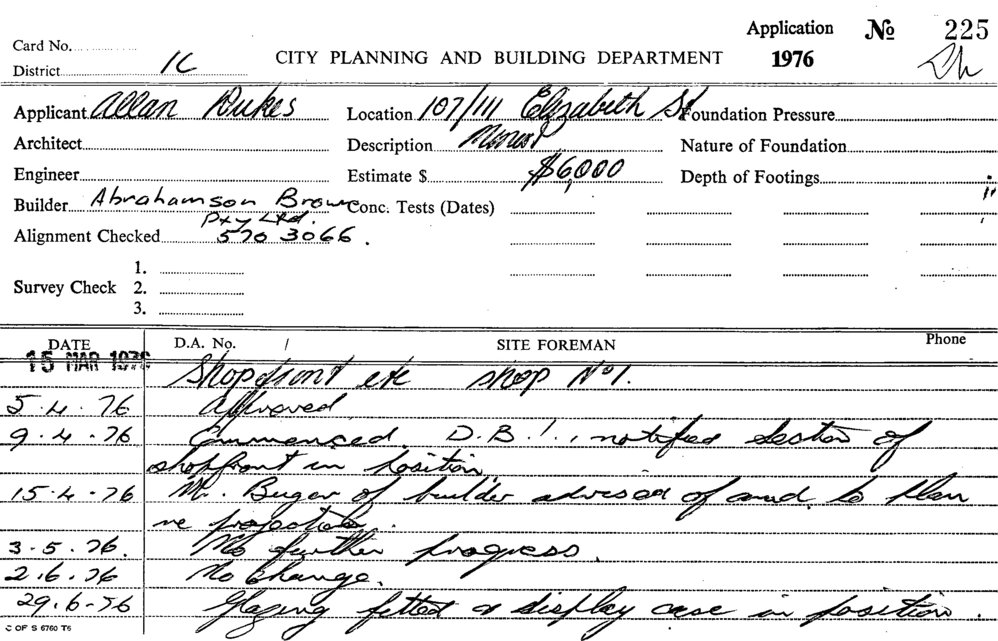 Application No 225
Card No.
CITY PLANNING AND BUILDING DEPARTMENT 1976
District 1C
Applicant Allan Dukes Location 107/111 Elizabeth St Foundation Pressure
Architect Description Nature of Foundation
Engineer Estimate $ $6,000 Depth of Footings
Builder Abrahamson Brown Conc. Tests (Dates)
Pty Ltd.
Alignment Checked 570 3066.
1.
Survey Check 2.
3.
DATE D.A. No. / SITE FOREMAN Phone
15 MAR 1976 Shopfront etc shop No 1.
5.4.76 Approved
9.4.76 Commenced. D.B.I., notified section of
shopfront in position
15.4.76 Mr. of builder advised of amd. to plan
re projection.
3.5.76. No further progress.
2.6.76 No change.
29.6-76 Glazing fitted & display case in position.
C OF S 6760 T6